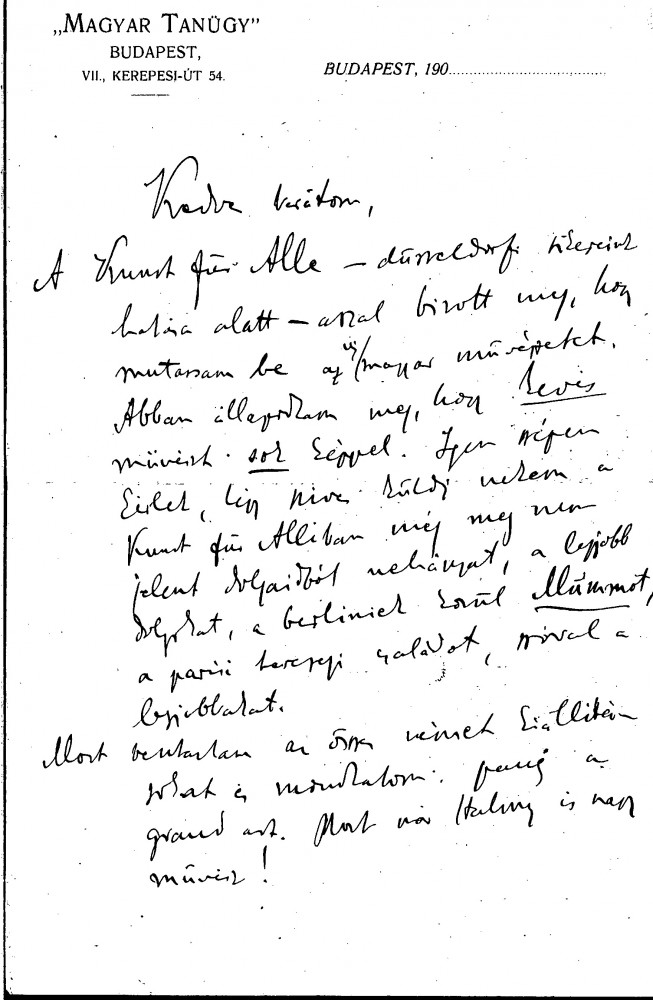 „MAGYAR TANÜGY"
BUDAPEST,
VII., KEREPESI-ÚT 54.
BUDAPEST, 190
Kedves barátom,
A Kunst für Alle – düsseldorfi sikereink
hatása alatt – azzal bizott meg, hogy
mutassam be az új magyar művészetet.
Abban állapodtam meg, hogy kevés
művészt sok képpel. Igen szépen
kérlek, légy szíves küldj nekem a
Kunst für Alleban még meg nem
jelent dolgaidból nehányat, a legjobb
dolgokat, a berliniek közül Mümmot,
a parisi családot, szóval a
legjobbakat.
Most az össz német kiállításo
sokat és mondhatom: a
grand art. Most már Halmy is nagy
művész!